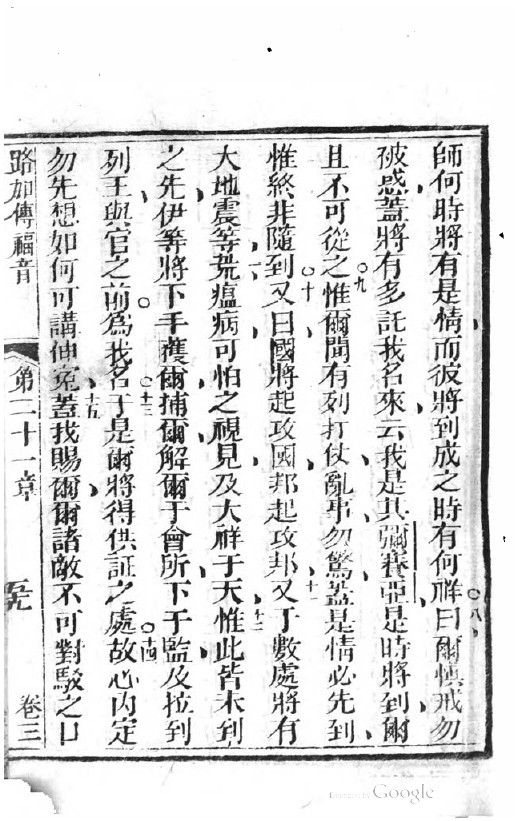 師何時將有是情而彼將到成之時有何祥曰爾慎戒勿
八
被惑蓋將有多託我名來云我是其彌賽亞是時將到爾
九
且不可從之惟爾聞有列打仗亂事勿驚蓋是情必先到
十
惟終非隨到又曰國將起攻國邦起攻邦又于數處將有
十一
大地震等荒瘟病可怕之視見及大祥于天惟此皆未到
十二
之先伊等將下手擭爾捕爾解爾于會所下于監及拉到
十三
列王與官之前為我名于是爾將得供証之處故心內定
十四
勿先想如何可講伸冤蓋我賜爾爾諸敵不可對駁之口
十五
路加傳福音
第二十一章
卷三
Digitized by Google